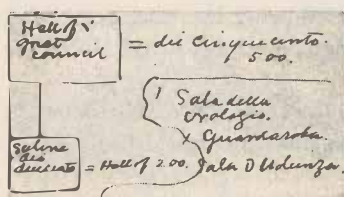 Hall of
great
council
= dei cinquecento.
500.
Sala della
orologio.
x Guardaroba.
Saline
dei
ducento = Hall of 200. Sala D Udienza.